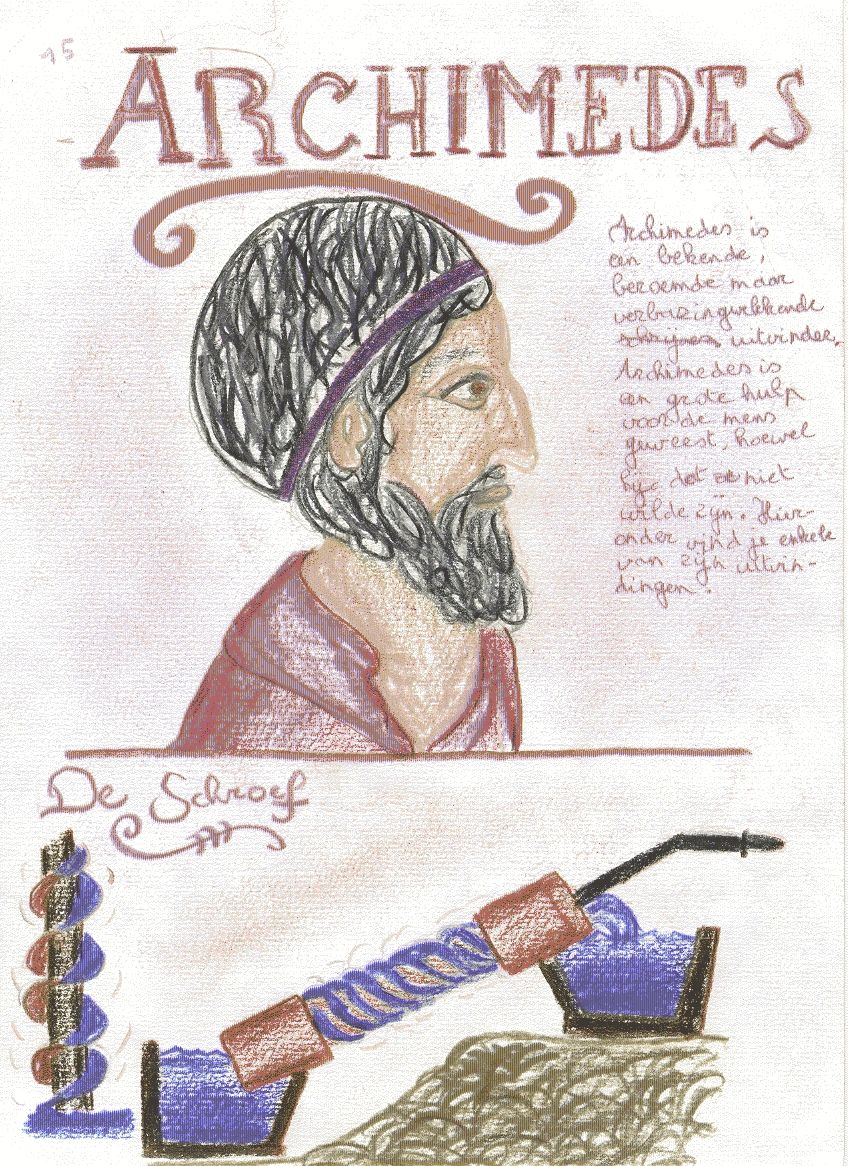 15
ARCHIMEDES
Archimedes is
een bekende,
beroemde maar
verbazingwekkende
schrijver uitvinder.
Archimedes is
een grote hulp
voor de mens
geweest, hoewel
hij dat niet
wilde zijn. Hier-
onder vind je enkele
van zijn uitvin-
dingen.
De Schroef